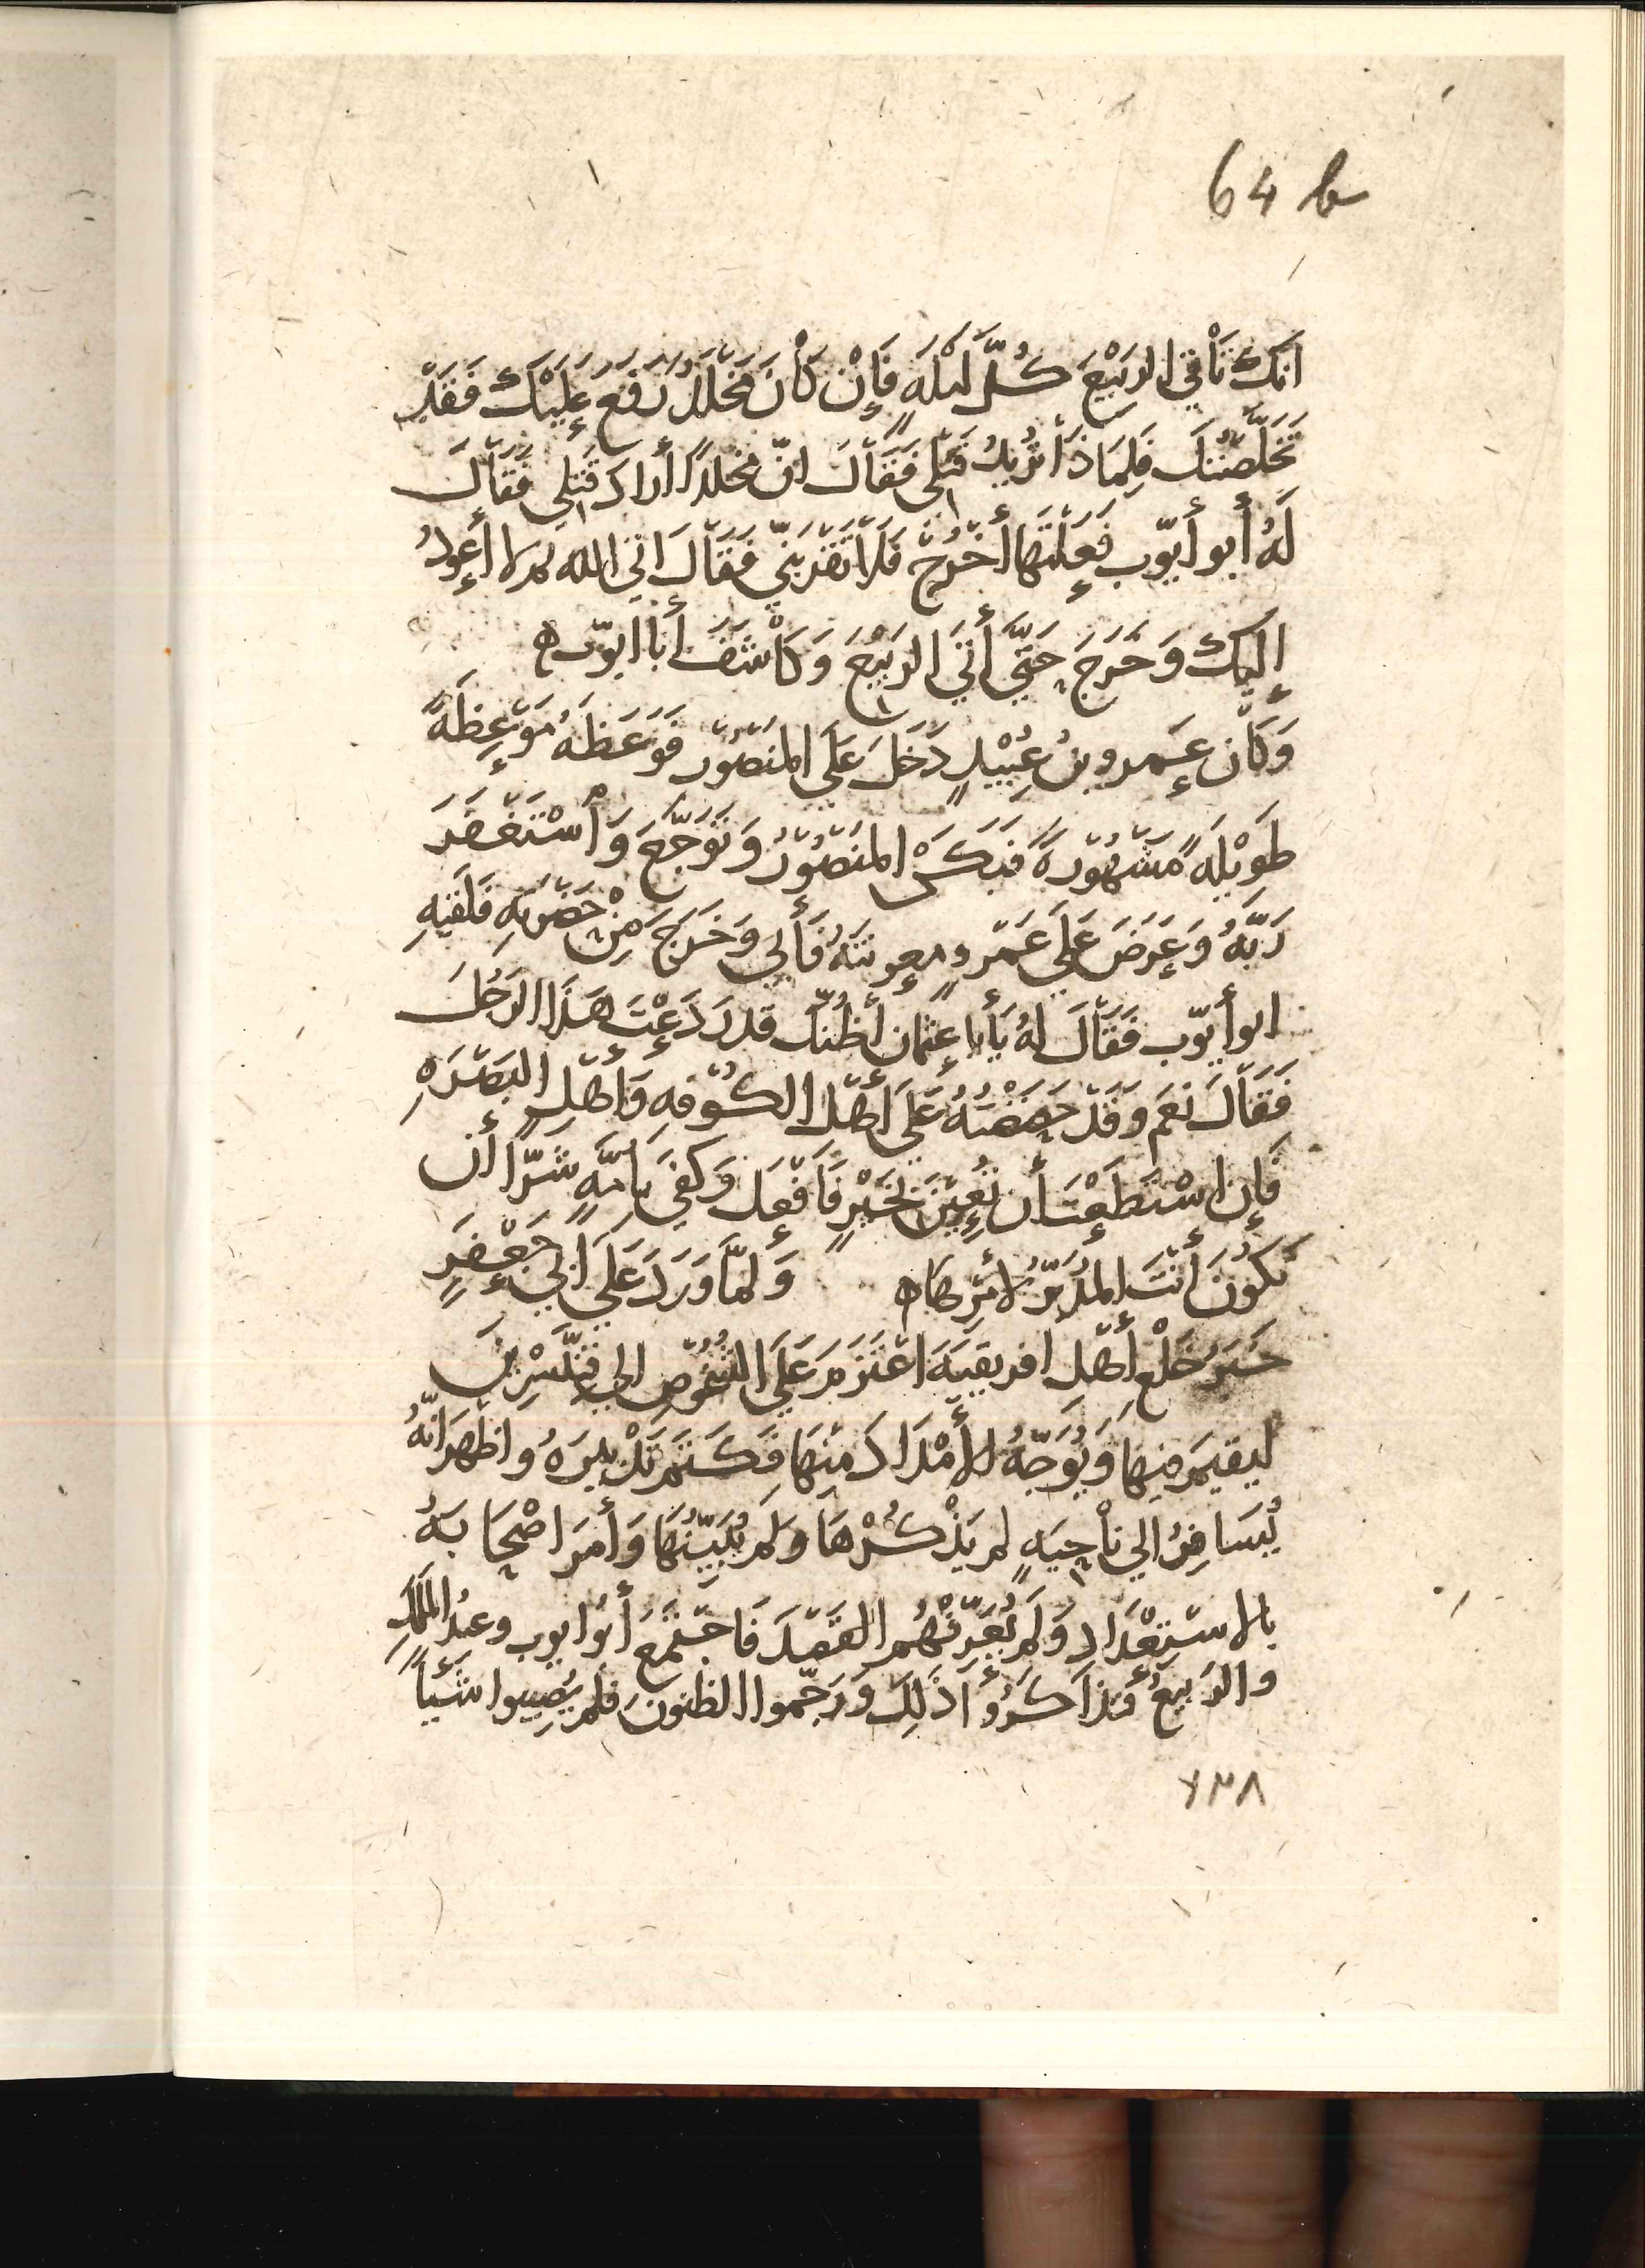 64 b
انَكَ تَأْتي الرَبِيْعَ كُلَّ لَيْلَهٍ فَإِنْ كَانَ مَخْلَدٌ رَفَعَ عَلَيْكَ فَقَدْ
تَخَلَّصْتُكَ فَلِمَاذَا تُرْيدُ قَتْلى فَقَالَ انّ مخلدًا أراد قَتلِي فَقَالَ
لَهُ أبو أيّوب فَعَلْتَهَا أُخْرُجْ فَلَا تَقْرَبَنّي فَقَالَ اني والله لا أعودُ
إليك وَخَرَجَ حَتَّي أتَي الرَبِيْعَ وَكَاشَفَ أبا ايّوب ه
وَكَان عَمرو بنُ عُبَيْدٍ دَخَلَ عَلَي المنصُوْر فَوَعَظَهُ مَوْعِظَةً
طَوِيْلَهً مَشْهُوْرةً فَبَكَى المنصُوْرُ وَتَوَجَّعَ وَاسْتَغْفَرَ
رَبَّهُ وَعَرَضَ عَلَي عَمْرٍو معونتَهُ فَأبي وَخَرَجَ مِنْ حَضْرَتِهِ فَلَقِيَهِ
ابو أيّوب فَقَالَ لهُ يَأبا عثمان أظُنّك قد رَدَعْتَ هَذَا الرَجُلَ
فَقَالَ نَعَم وَقَدْ حَضَضْتُهُ عَلَى أهْل الكُوْفهِ وَأهْلِ البَصْرَهِ
فَإِن اسْتَطَعْتَ أن تُعِيْنَ بخَيْرٍ فَافْعَل وَكفَي بأمّهٍ شرًّا أن
تَكُوْنَ أنْتَ المدَبّرُ لأمْرِهَا ه وَلمَّا وَرَدَ عَلَي أبي جَعْفَرٍ
خَبَرُ خلْعِ أهْلِ افريقيَهَ اعْتَزَمَ عَلَي الشُخُوْصِ الي قِنَّسْرِيْنَ
ليقيمَ فيها وَيُوَجّهُ الأمْدَادَ منهَا فَكَتَمَ تَدْبيرَهُ واظهَرَ انّهُ
يُسَافِرُ الي نَاحِيَهٍ لم يَذْكُرْهَا وَلم يُبَيّنْهَا وَأمَرَ اصْحَابَهُ
بالاسْتِعْدَادِ وَلم يُعَرّفْهُم القَصْدَ فَاجْتَمَعَ أبُو ايوب وعبدُ الملكِ
والرَبِيعُ فَذَاكَرُوا ذَلِكَ وَرَجّموا الظنونَ فلم يُصِيبوا شَيْأً
١٣٨